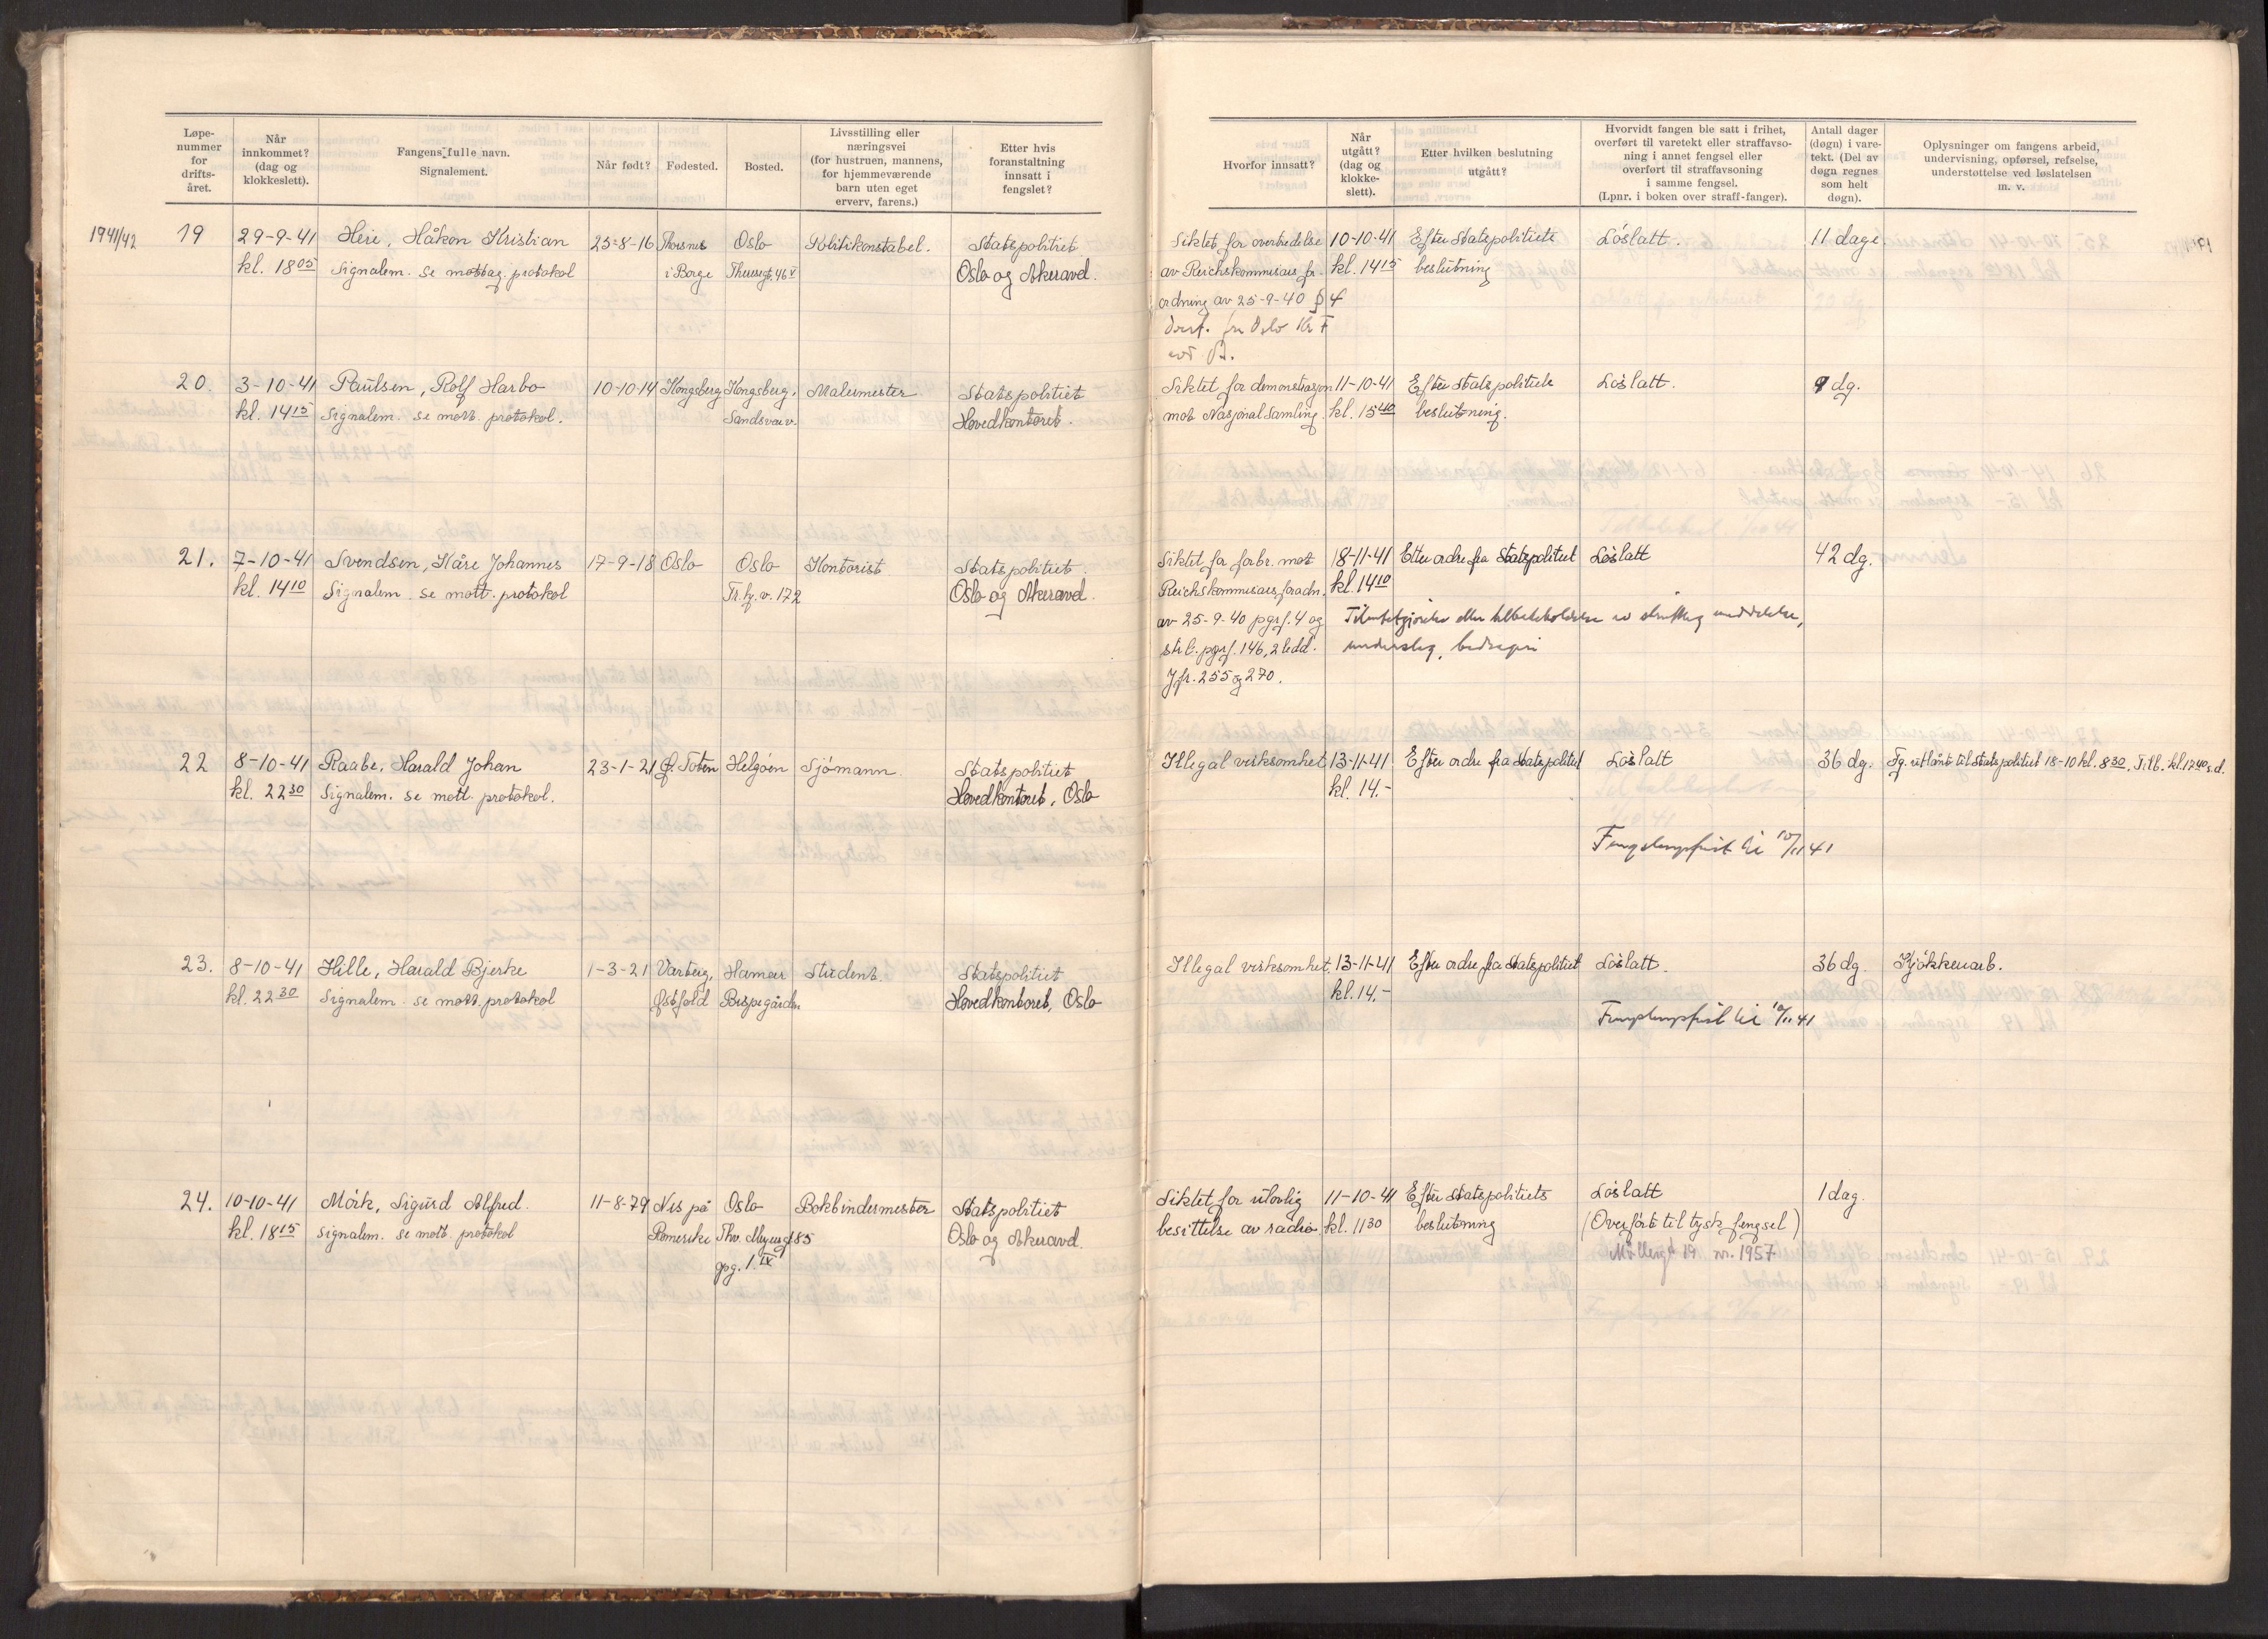 Løpe-
nummer
for
drifts-
året.
Når
innkommet?
(dag og
klokkeslett).
Fangens fulle navn.
Signalement.
Når født?
Fødested.
Bosted.
Livsstilling eller
næringsvei
(for hustruen, mannens,
for hjemmeværende
barn uten eget
erverv, farens.)
Etter hvis
foranstaltning
innsatt i
fengslet?
Hvorfor innsatt?
Når
utgått?
(dag og
klokke-
slett).
Etter hvilken beslutning
utgått?
Hvorvidt fangen ble satt i frihet,
overført til varetekt eller straffavso-
ning i annet fengsel eller
overført til straffavsoning
i samme fengsel.
(Lpnr. i boken over straff-fanger).
Antall dager
(døgn) i vare-
tekt. (Del av
døgn regnes
som helt
døgn).
Oplysninger om fangens arbeid,
undervisning, opførsel, refselse,
understøttelse ved løslatelsen
m. v.
1941/42 19 29-9-41 Heie, Håkon Kristian 25-8-16 Thorsnes Oslo Politikonstabel. Statspolitiet
kl. 18 05 Signalem. se mottag. protokol i Borge Thereses gt. 46 V Oslo og Akeravd.
Siktet for overtredelse 10-10-41 Efter Statspolitiets Löslatt. 11 dage
av Reichskommisærs fr- kl. 14 15 beslutning
ordning av 25-9-40 § 4
20. 3-10-41 Paulsen, Rolf Harbo 10-10-14 Kongsberg Kongsberg, Malermester Statspolitiet
kl. 14 15 Signalem. se mott. protokol. Sandsværv. Hovedkontoret.
Siktet for demonstrasjon 11-10-41 Efter Statspolitiets Löslatt. 9 dg.
mot Nasjonal Samling. kl. 15 40 beslutning.
21. 7-10-41 Svendsen, Kåre Johannes 17-9-18 Oslo Oslo Kontorist Statspolitiet.
kl. 14 10 Signalem. se mott. protokol Tr.hj.v. 172 Oslo og Akeravd.
Siktet for forbr. mot 18-11-41 Etter ordre fra Statspolitiet Löslatt 42 dg.
Reichskommisærs foradn. kl. 14 10
av 25-9-40 pgrf. 4 og
strl. pgrf. 146, 2 ledd. underslag, bedrageri
Jfr. 255 og 270.
22 8-10-41 Raabe, Harald Johan 23-1-21 Ø. Toten Helgöen Sjömann Statspolitiet
kl. 22 30 Signalem. se mott. protokol. Hovedkontoret, Oslo
Illegal virksomhet 13-11-41 Efter ordre fra Statspolitiet Löslatt 36 dg. Fg. utlånt til Statspolitiet 18-10 kl. 8 30. Tilb. kl. 12 40 s.d.
kl. 14.-
Fengslingsfrist til 10/11 41
23. 8-10-41 Hille, Harald Bjerke 1-3-21 Varteig, Hamar Student. Statspolitiet
kl. 22 30 Signalem. se mott. protokol Østfold Bispegården Hovedkontoret, Oslo
Illegal virksomhet. 13-11-41 Efter ordre fra Statspolitiet Löslatt. 36 dg. Kjökkenarb.
kl. 14.-
Fengslingsfrist til 10/11 41
24. 10-10-41 Mörk, Sigurd Alfred. 11-8-79 Nes på Oslo Bokbindermester Statspolitiet
kl. 18 15 Signalem. se mott. protokol Romerike Thv. Meyersgt 85 Oslo og Akeravd.
opg. 1. IV
Siktet for ulovlig 11-10-41 Efter Statspolitiets Löslatt 1 dag.
besittelse av radio. kl. 11 30 beslutning (Overfört til tysk fengsel)
Möllergt 19 nr. 1957